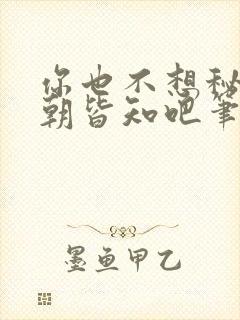 你也不想秘
朝皆知吧笔
墨鱼甲乙